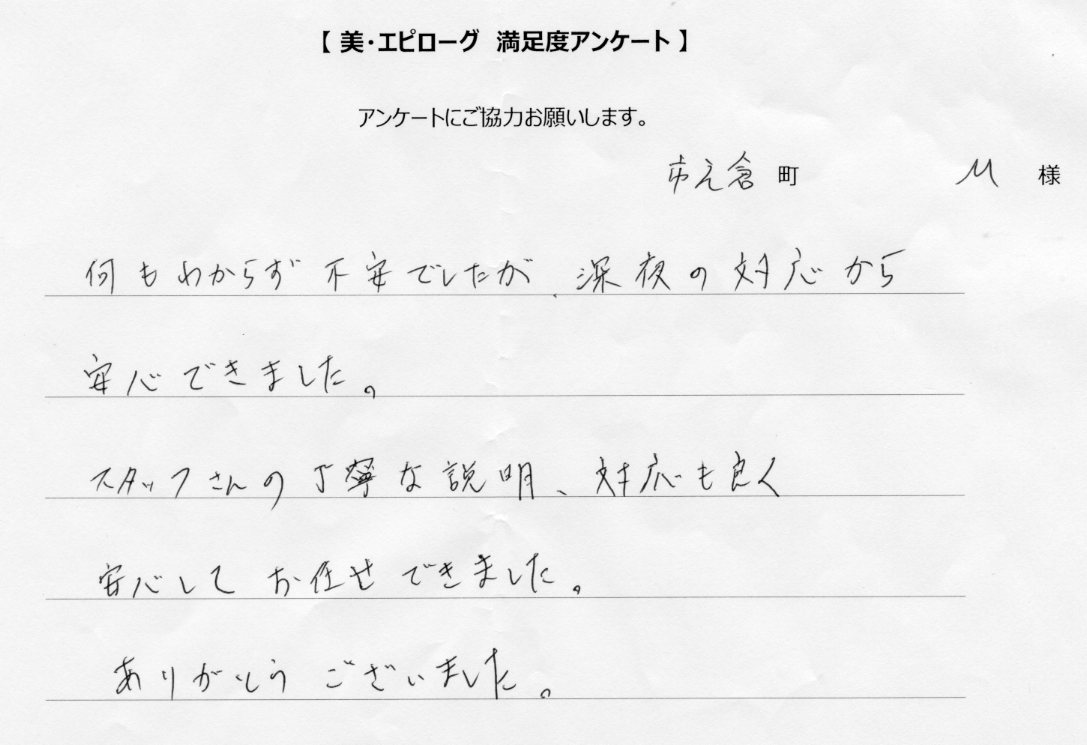 【 美・エピローグ 満足度アンケート 】
アンケートにご協力お願いします。
市之倉 町 M 様
何もわからず不安でしたが、深夜の対応から
安心できました。
スタッフさんの丁寧な説明、対応も良く
安心してお任せできました。
ありがとうございました。